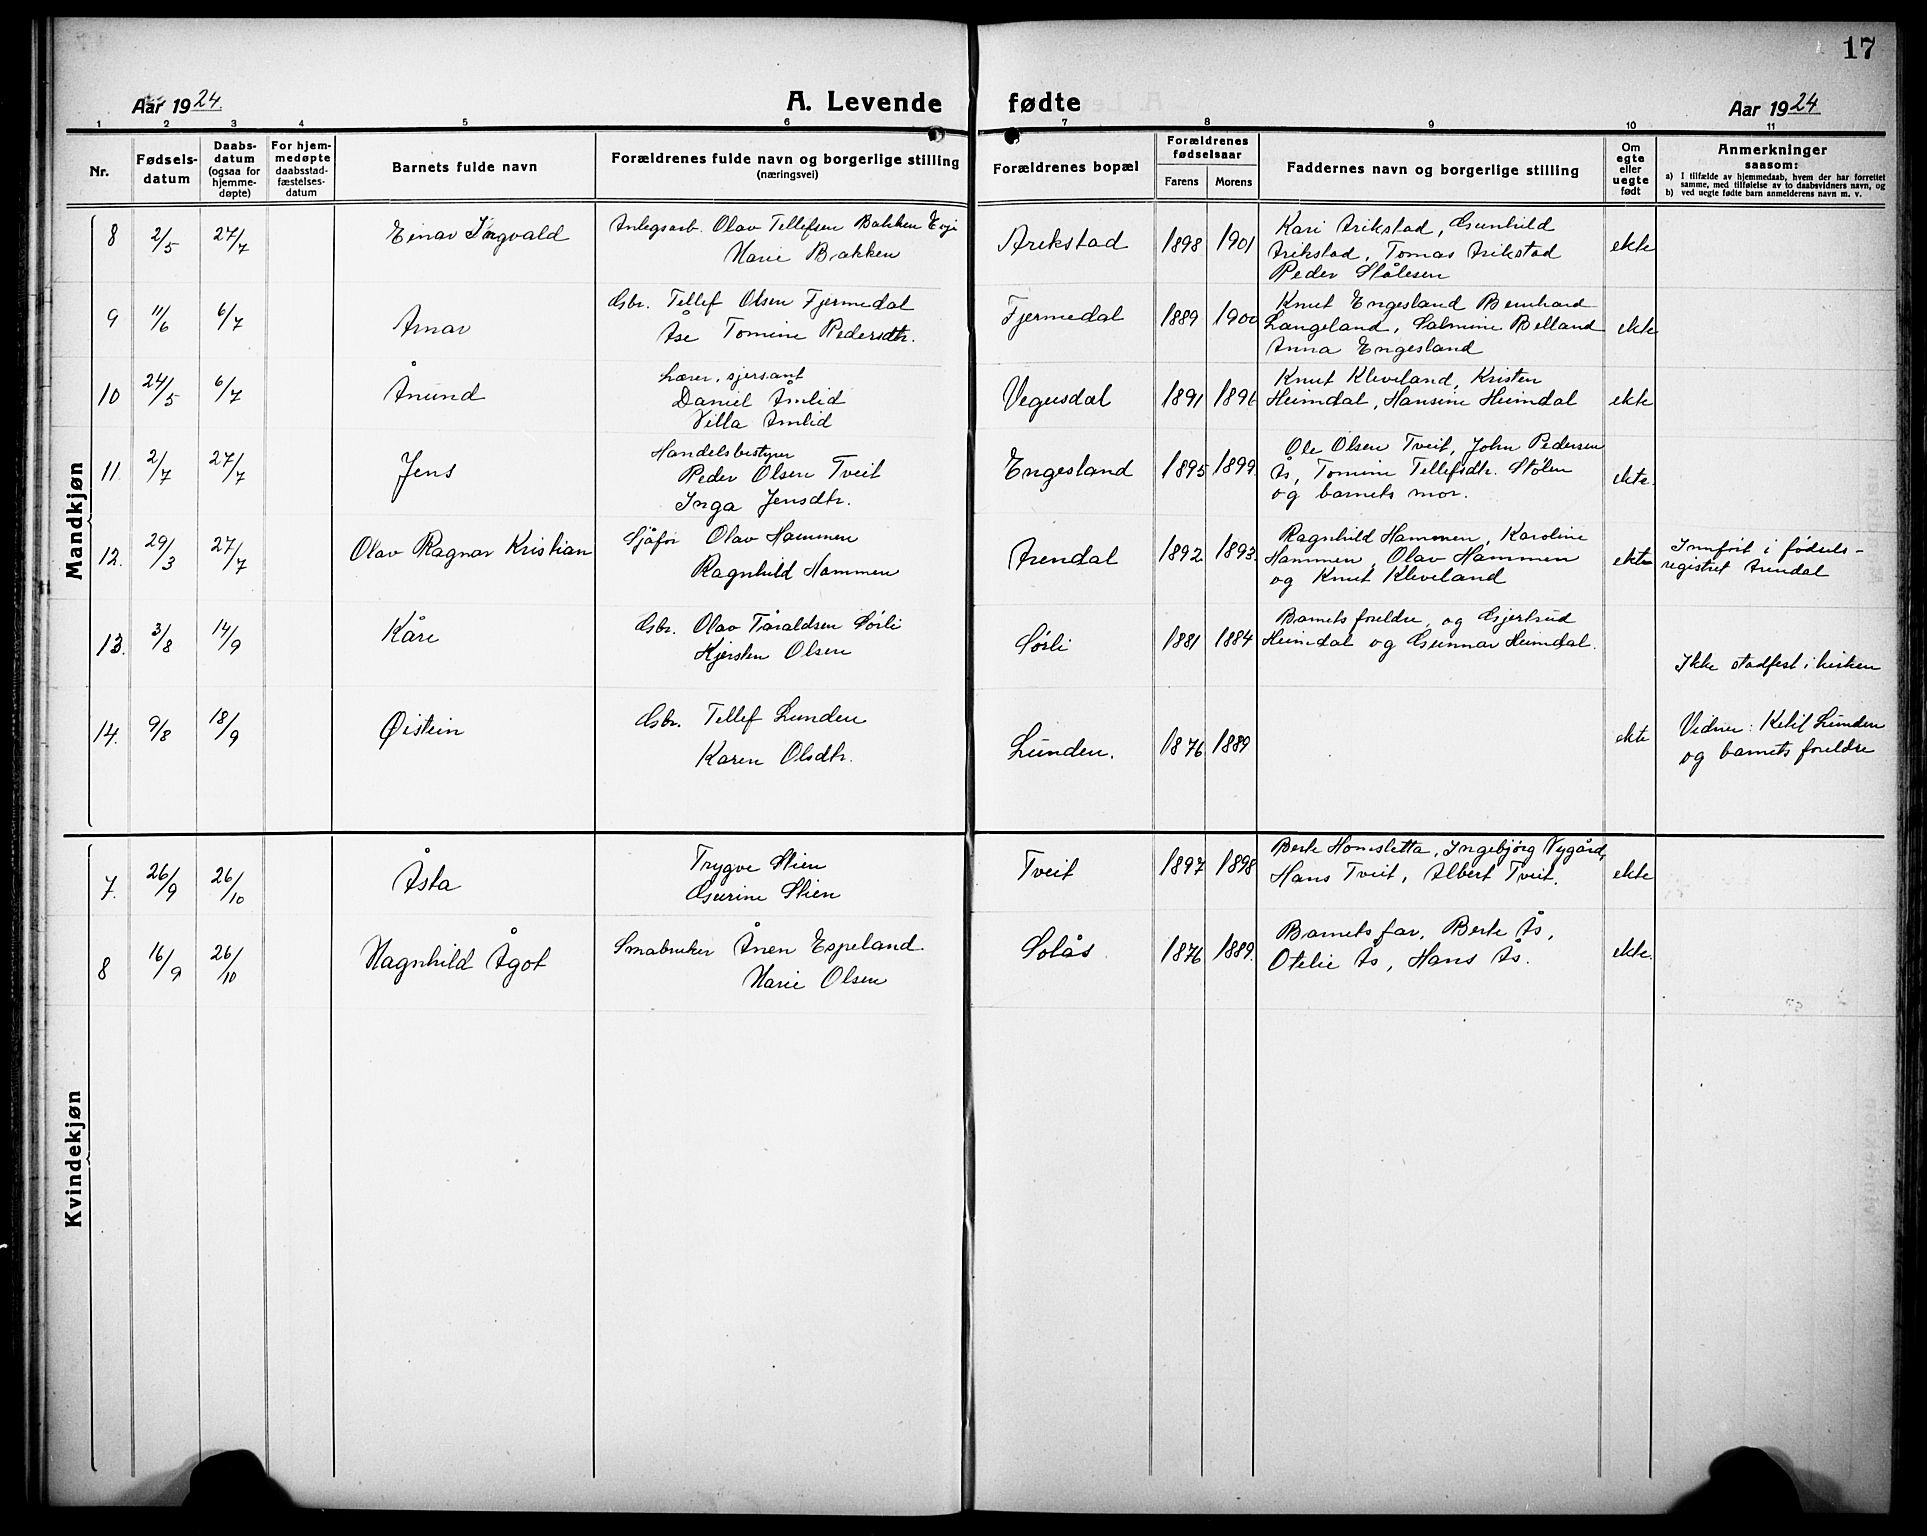 17
Aar 1924.
A. Levende fødte
Aar 1924
1 2 3 4 5 6 7 8 9 10 11
Nr.
Fødsels-
datum
Daabs-
datum
(ogsaa for
hjemme-
døpte)
For hjem-
medøpte
daabsstad-
fæstelses-
datum
Barnets fulde navn
Forældrenes fulde navn og borgerlige stilling
(næringsvei)
Forældrenes bopæl
Forældrenes
fødselsaar
Farens Morens
Faddernes navn og borgerlige stilling
Om
egte
eller
uegte
født
Anmerkninger
saasom:
a) I tilfælde av hjemmedaab, hvem der har forrettet
samme, med tilføielse av to daabsvidners navn, og
b) ved uegte fødte barn anmelderens navn m. v.
Mandkjøn
8 2/5 27/7 Einar Ingvald
Anlegsarb. Olav Tellefsen Bakken Evje
Marie Bakken
Arikstad 1898 1901
Kari Arikstad, Gunhild
Arikstad, Tomas Arikstad
Peder Stålesen
ekte
9 11/6 6/7 Arnar
Gbr. Tellef Olsen Fjermedal
Åse Tomine Pedersdtr.
Fjermedal 1889 1900
Knut Engesland Bernhard
Langeland, Salmine Belland
Anna Engesland
ekte
10 24/5 6/7 Ånund
Lærer, sjersant
Daniel Åmlid
Villa Åmlid
Vegusdal 1891 1896
Knut Kleveland, Kristen
Heimdal, Hansine Heimdal
ekte
11. 2/7 27/7 Jens
Handelsbestyrer
Peder Olsen Tveit
Inga Jensdtr.
Engesland 1895 1899
Ole Olsen Tveit, John Pedersen
Ås, Tomine Tellefsdtr. Stølen
og barnets mor.
ekte.
12. 29/3 27/7 Olav Ragnar Kristian
Sjåfør Olav Hammen
Ragnhild Hammen
Arendal 1892 1893.
Ragnhild Hammen, Karoline
Hammen, Olav Hammen
og Knut Kleveland
ekte
Innført i fødsels-
registret Arendal
13. 3/8 14/9 Kåre
Gbr. Olav Tåraldsen Sørli
Kjersten Olsen
Sørli 1881 1884
Barnets foreldre, og Gjertrud
Heimdal og Gunnar Heimdal.
Ikke stadfest i kirken
14. 9/8 18/9 Øistein
Gbr. Tellef Lunden
Karen Olsdtr.
Lunden. 1876 1889
ekte
Vidner: Ketil Lunden
og barnets foreldre
Kvindekjøn
7. 26/9 26/10 Åsta
Trygve Stien
Gurine Stien
Tveit 1897 1898
Berte Homsletta, Ingebjørg Nygård,
Hans Tveit, Albert Tveit.
ekte
8 16/9 26/10 Magnhild Ågot
Småbruker Ånen Espeland
Marie Olsen
Solås 1876 1889.
Barnets far, Berte Ås,
Otelie Ås, Hans Ås.
ekte.